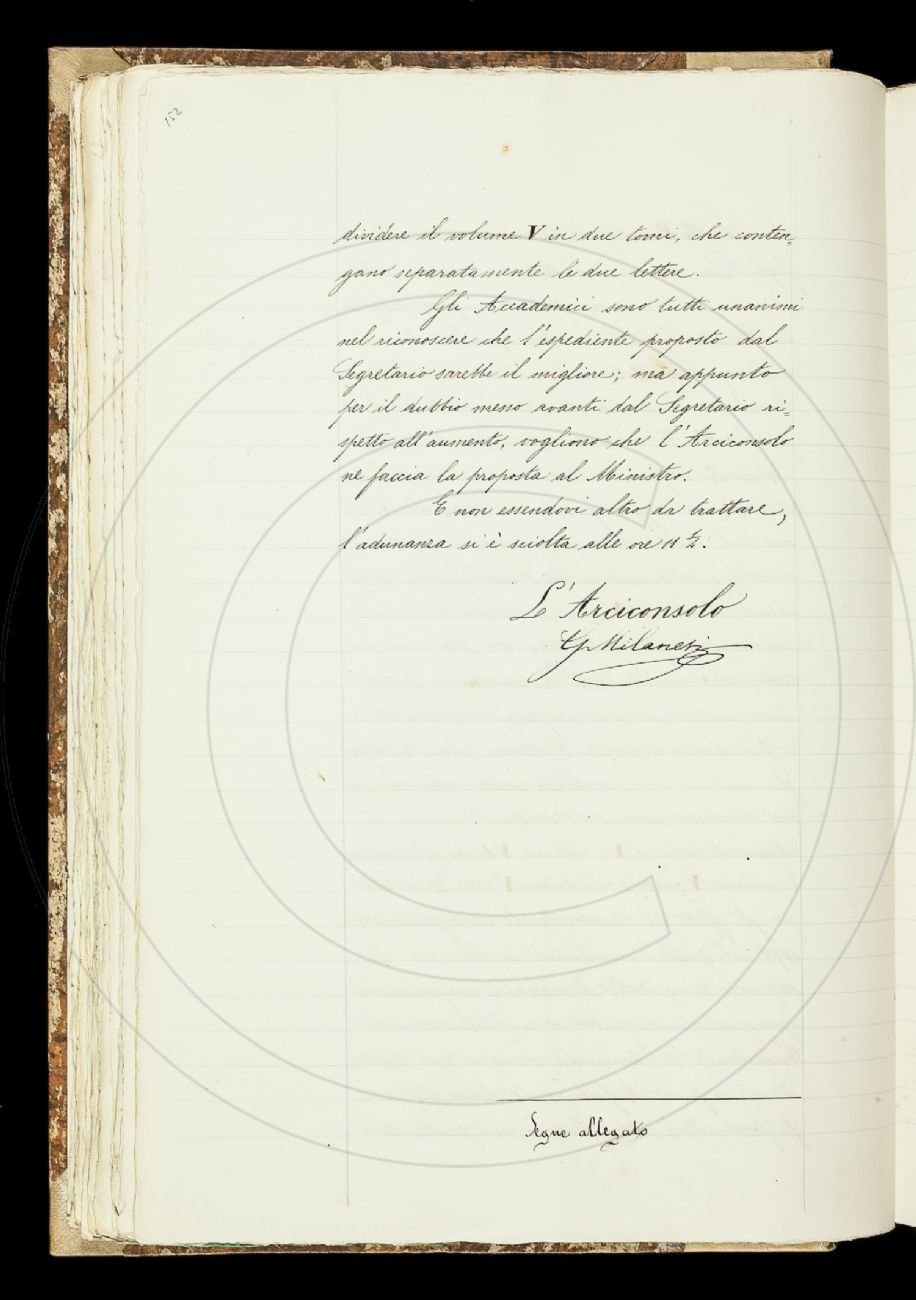 152
dividere il volume V in due tomi, che conten=
gano separatamente le due lettere.
Gli Accademici sono tutti unanimi
nel riconoscere che l'espediente proposto dal
Segretario sarebbe il migliore; ma appunto
per il dubbio messo avanti dal Segretario ri=
spetto all'aumento, vogliono che l'Arciconsolo
ne faccia la proposta al Ministro.
E non essendovi altro da trattare,
l'adunanza si è sciolta alle ore 11 ½.
L'Arciconsolo
G Milanesi
Segue allegato